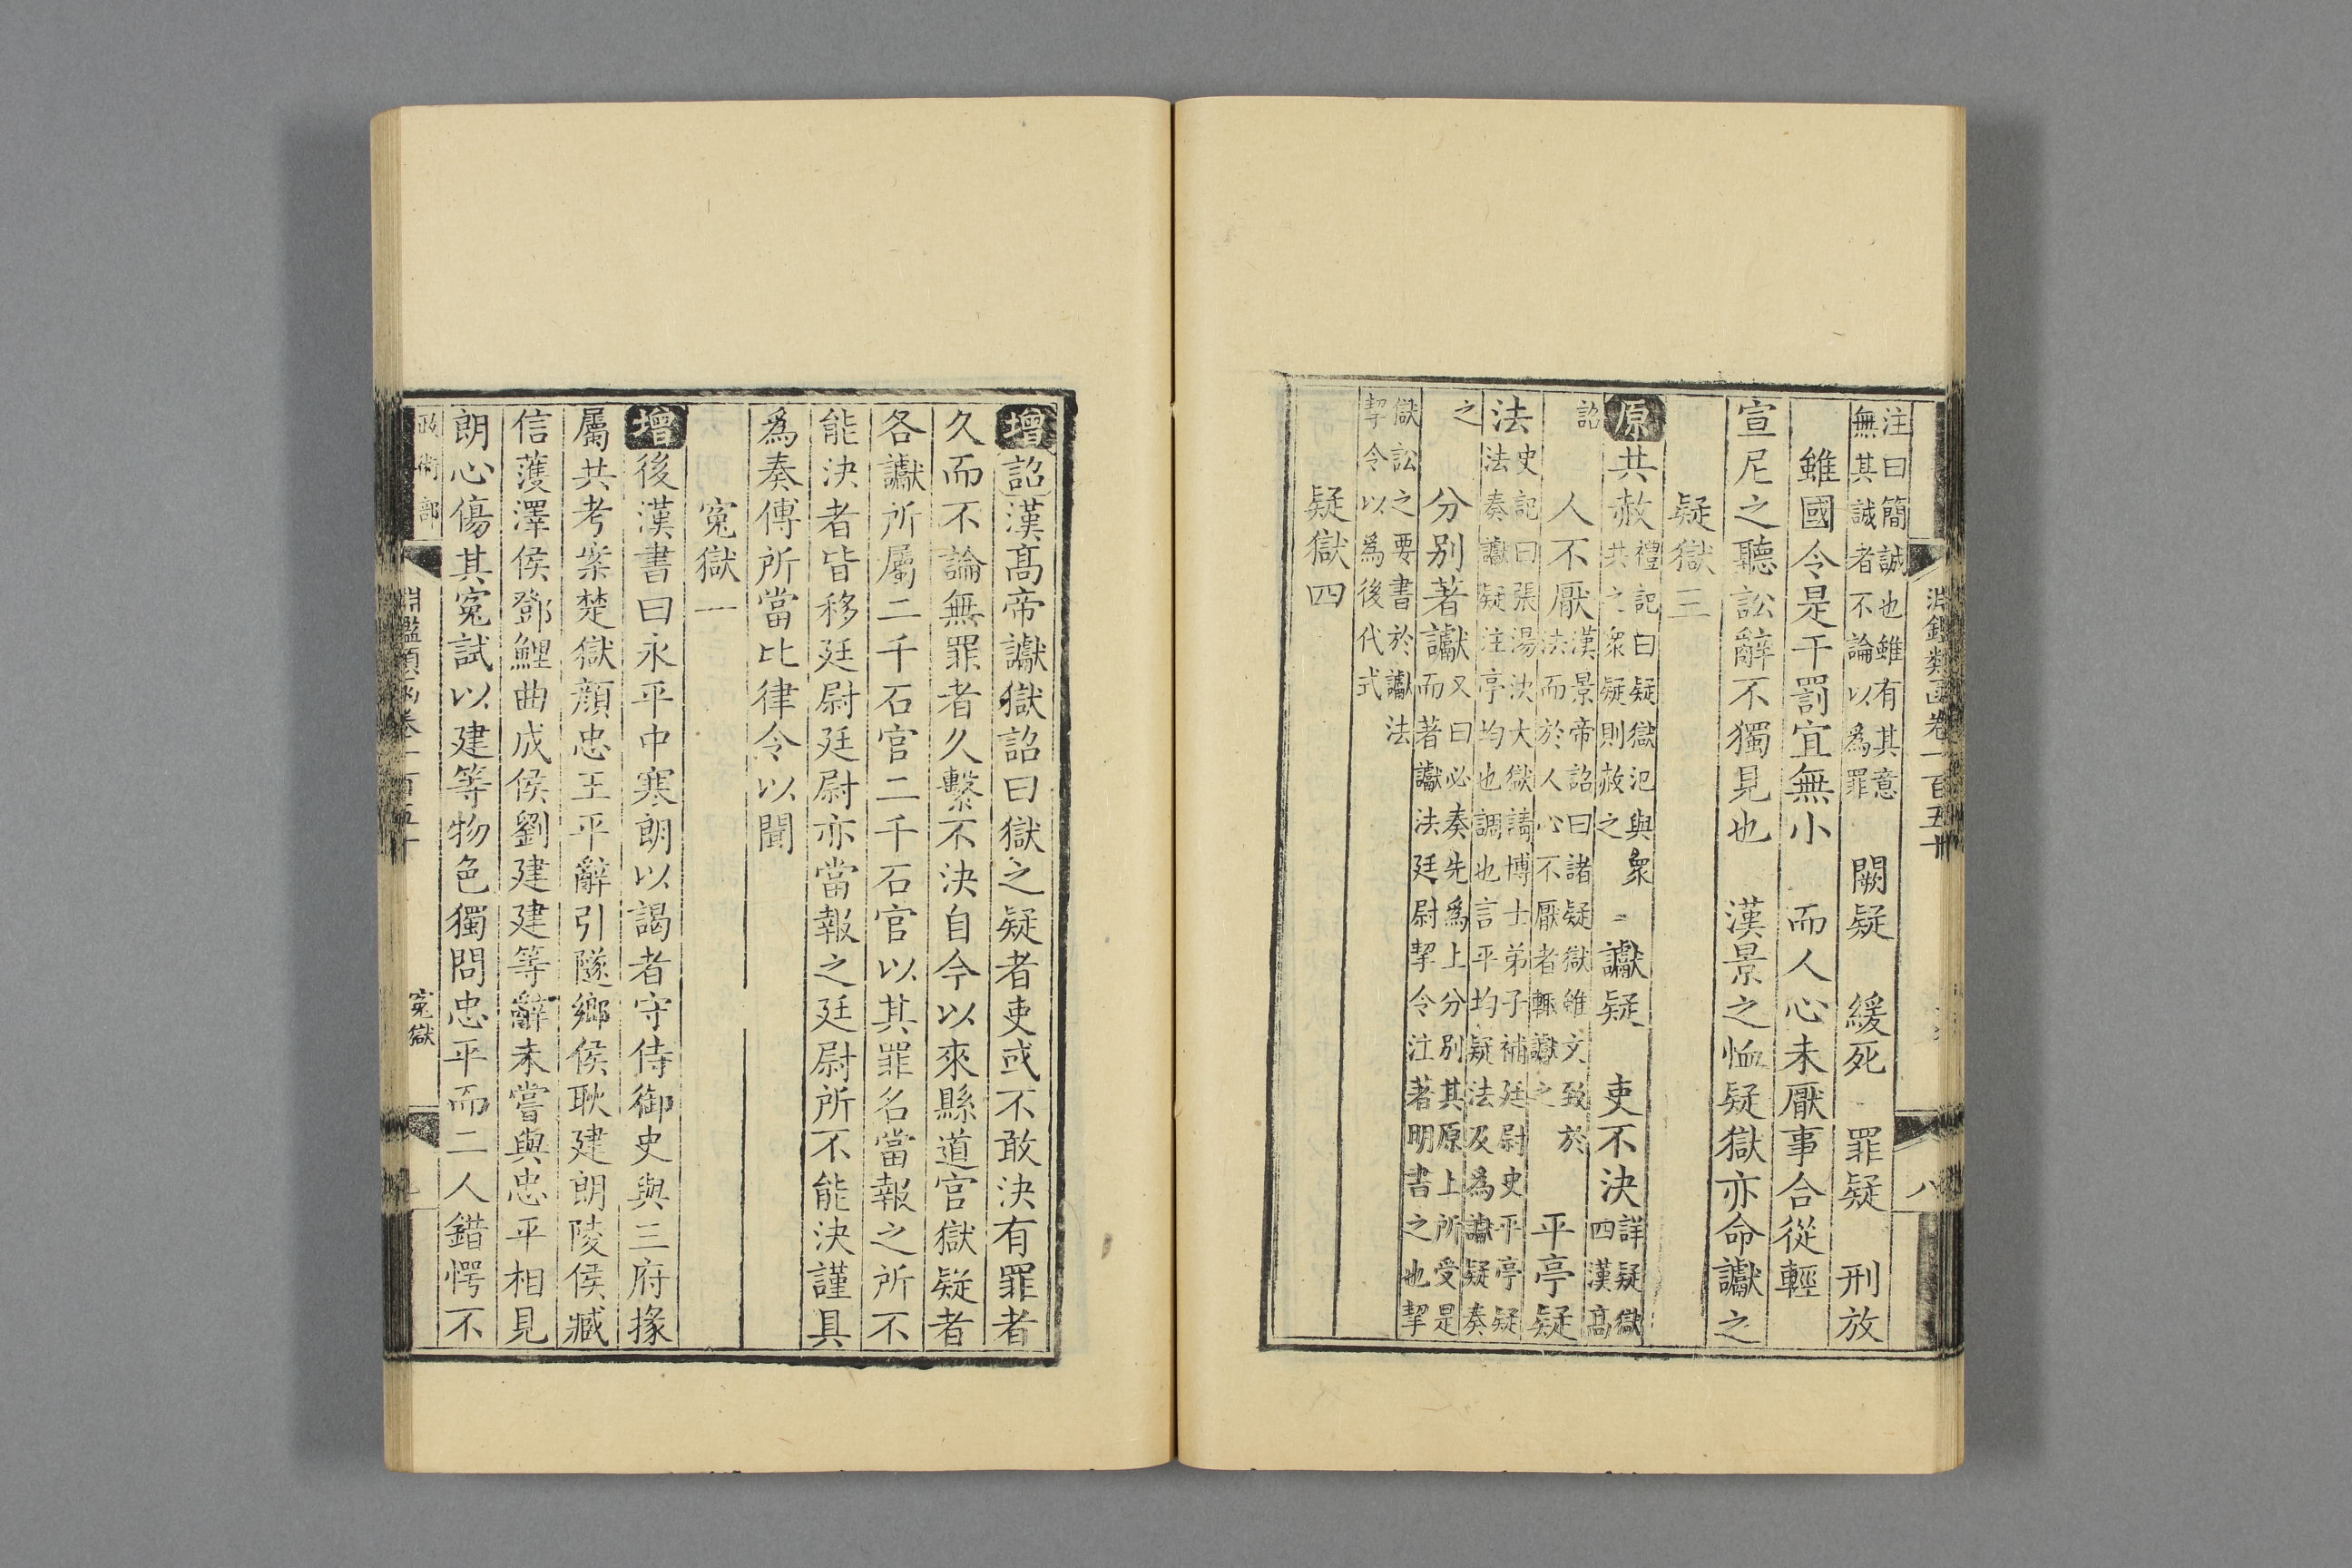 淵鑑類函卷一百五十
八
注曰簡誠也雖有其意
無其誠者不論以為罪
闕疑　緩死　罪疑　刑放
雖國令是干罰宜無小　而人心未厭事合從輕
宣尼之聽訟辭不獨見也　漢景之恤疑獄亦命讞之
疑獄三
原共赦
禮記曰疑獄汜與衆
共之衆疑則赦之
讞疑　吏不決
詳疑獄
四漢高
詔
人不厭
漢景帝詔曰諸疑獄雖文致於
法而於人心不厭者輒讞之
平亭疑
法
史記曰張湯決大獄請博士弟子補廷尉史平亭疑
法奏讞疑注亭均也調也言平均疑法及為讞疑奏
之
分別著讞
又曰必奏先為上分別其原上所受是
而著讞法廷尉挈令注著明書之也挈
獄訟之要書於讞法
挈令以為後代式
疑獄四
增詔漢高帝讞獄詔曰獄之疑者吏或不敢決有罪者
久而不論無罪者久繫不決自今以來縣道官獄疑者
各讞所屬二千石官二千石官以其罪名當報之所不
能決者皆移廷尉廷尉亦當報之廷尉所不能決謹具
為奏傅所當比律令以聞
寃獄一
增後漢書曰永平中寒朗以謁者守侍御史與三府掾
屬共考案楚獄顏忠王平辭引隧鄉侯耿建朗陵侯臧
信護澤侯鄧鯉曲成侯劉建建等辭未嘗與忠平相見
朗心傷其寃試以建等物色獨問忠平而二人錯愕不
政術部
淵鑑類函卷一百五十
寃獄